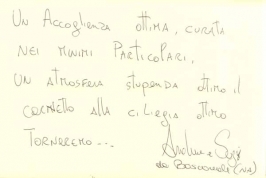 UN ACCOGLIENZA OTTIMA, CURATA
NEI MINIMI PARTICOLARI.
UN ATMOSFERA STUPENDA OTTIMO IL
CORNETTO ALLA CILIEGIA OTTIMO
TORNEREMO...
Andrea e
da (NA)